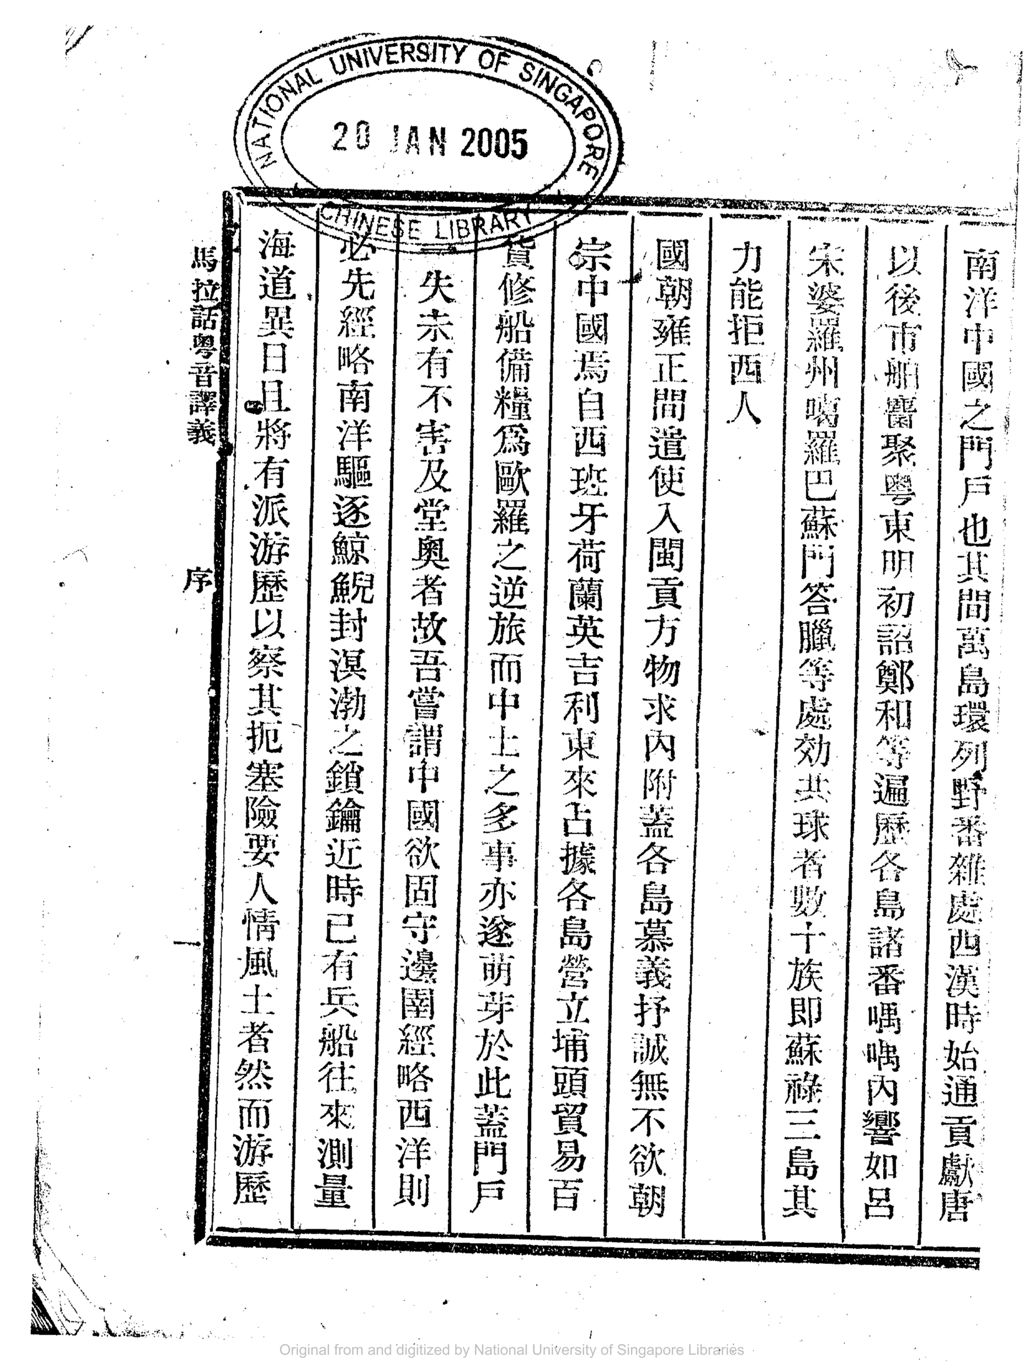 NATIONAL UNIVERSITY OF SINGAPORE
20 JAN 2005
CHINESE LIBRARY
南洋中國之門戶也其間萬島環列野番雜處西漢時始通貢獻唐
以後市舶麕聚粵東明初詔鄭和等遍歷各島諸番喁喁內響如呂
宋婆羅州噶羅巴蘇門答臘等處効共球者數十族即蘇祿三島其
力能拒西人
國朝雍正間遣使入閩貢方物求內附蓋各島慕義抒誠無不欲朝
宗中國焉自西班牙荷蘭英吉利東來占據各島營立埔頭貿易百
貨修船備糧爲歐羅之逆旅而中土之多事亦遂萌芽於此蓋門戶
一失未有不害及堂奧者故吾嘗謂中國欲固守邊圉經略西洋則
必先經略南洋驅逐鯨鯢封溟渤之鎖鑰近時已有兵船往來測量
海道異日且將有派游歷以察其扼塞險要人情風土者然而游歷
馬拉話粵音譯義 序 一
Original from and digitized by National University of Singapore Libraries